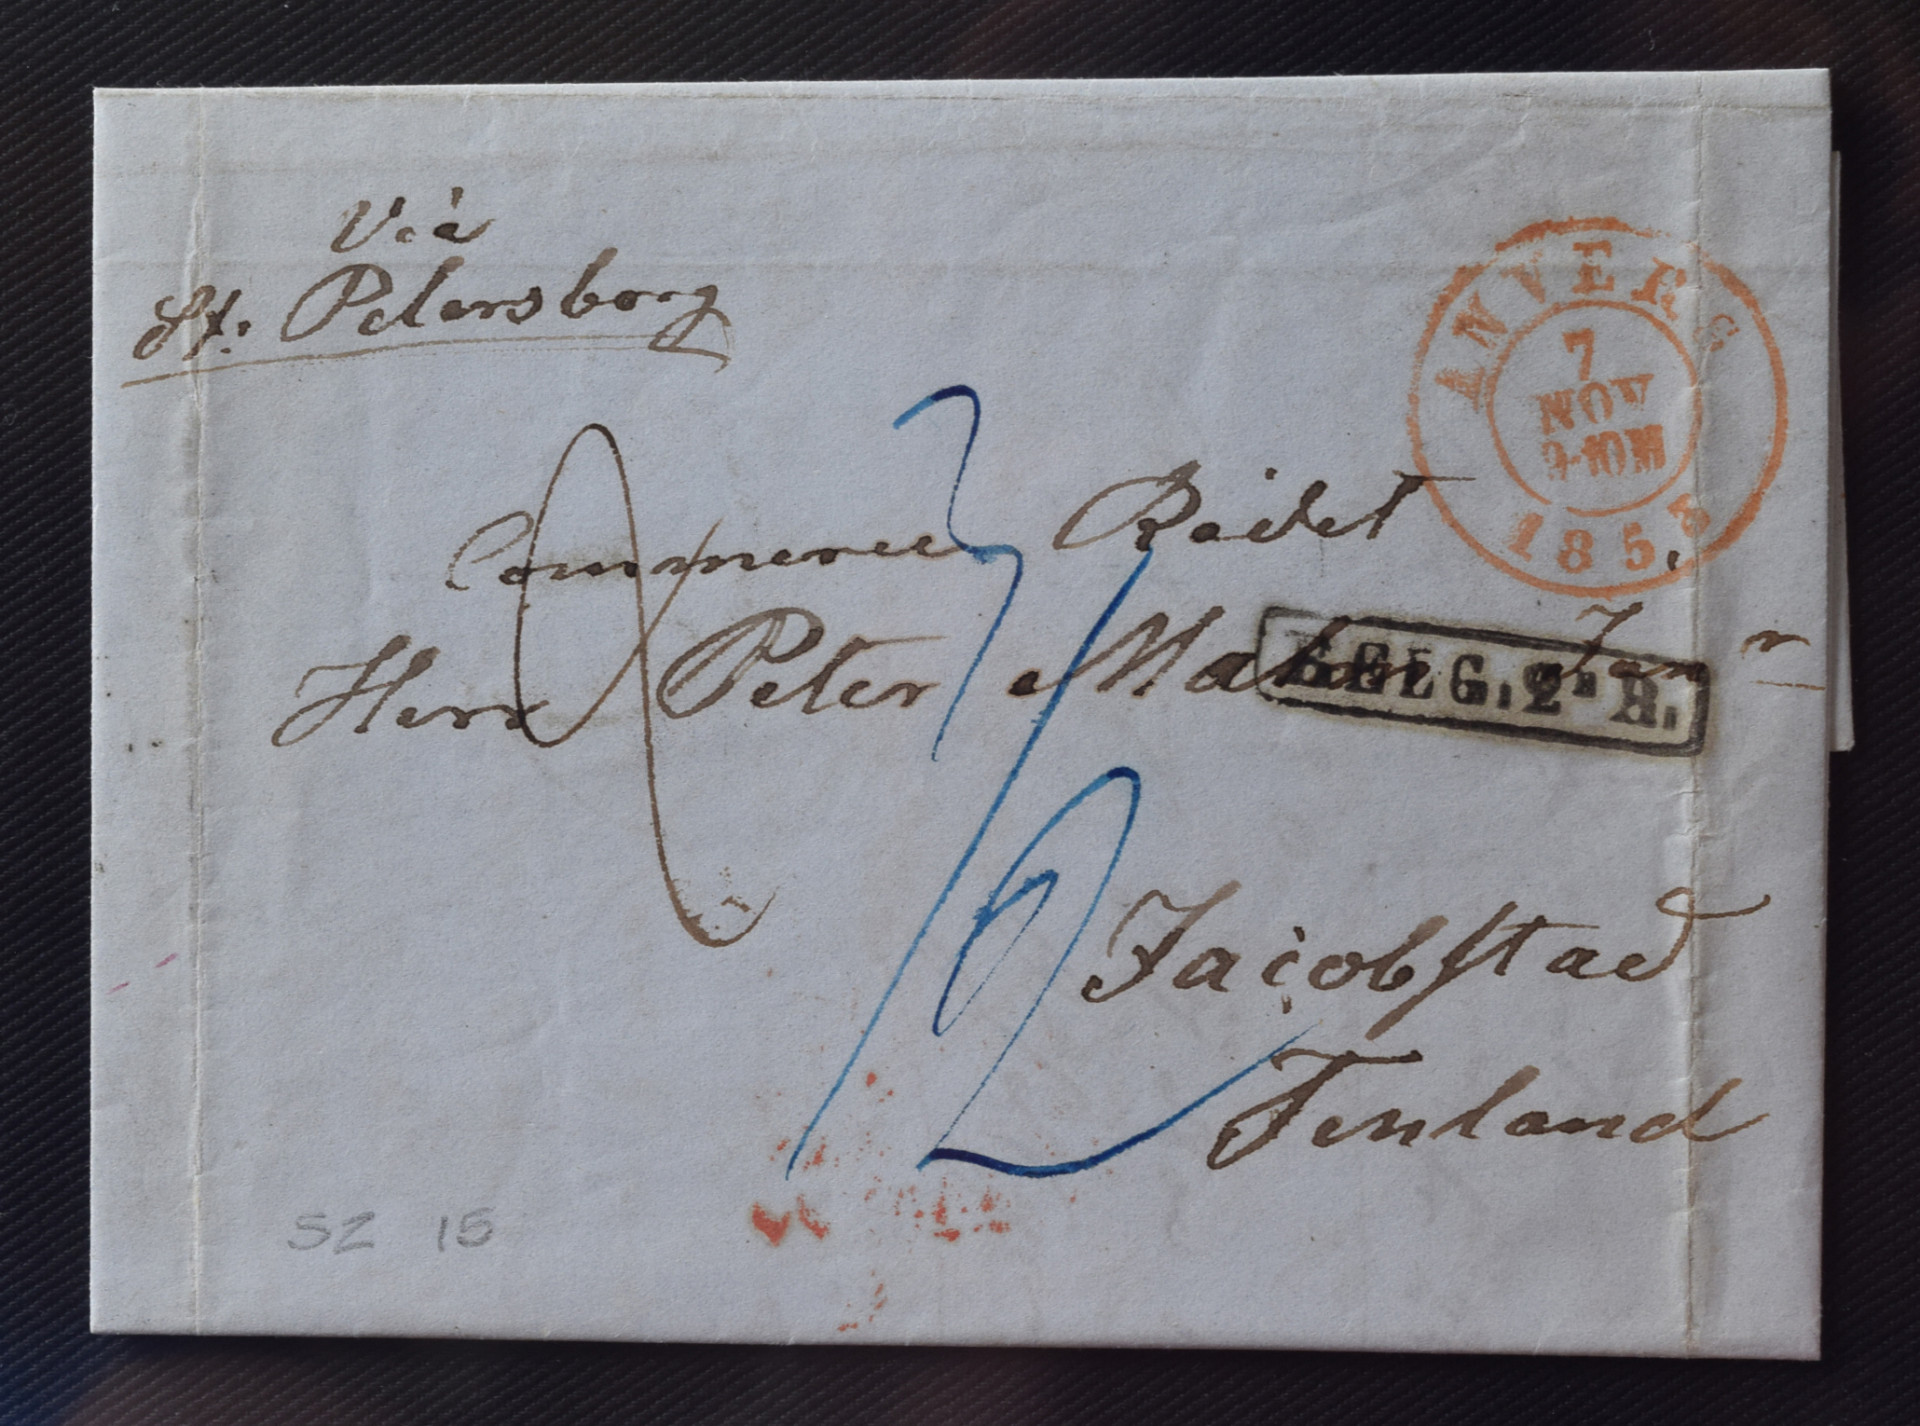 Via
St. Petersborg
ANVERS
7
NOV
9-10M
1853
Commerce Rådet
Herr Peter Malm Jan r
BELG. 2e R.
Jacobstad
Finland
SZ 15